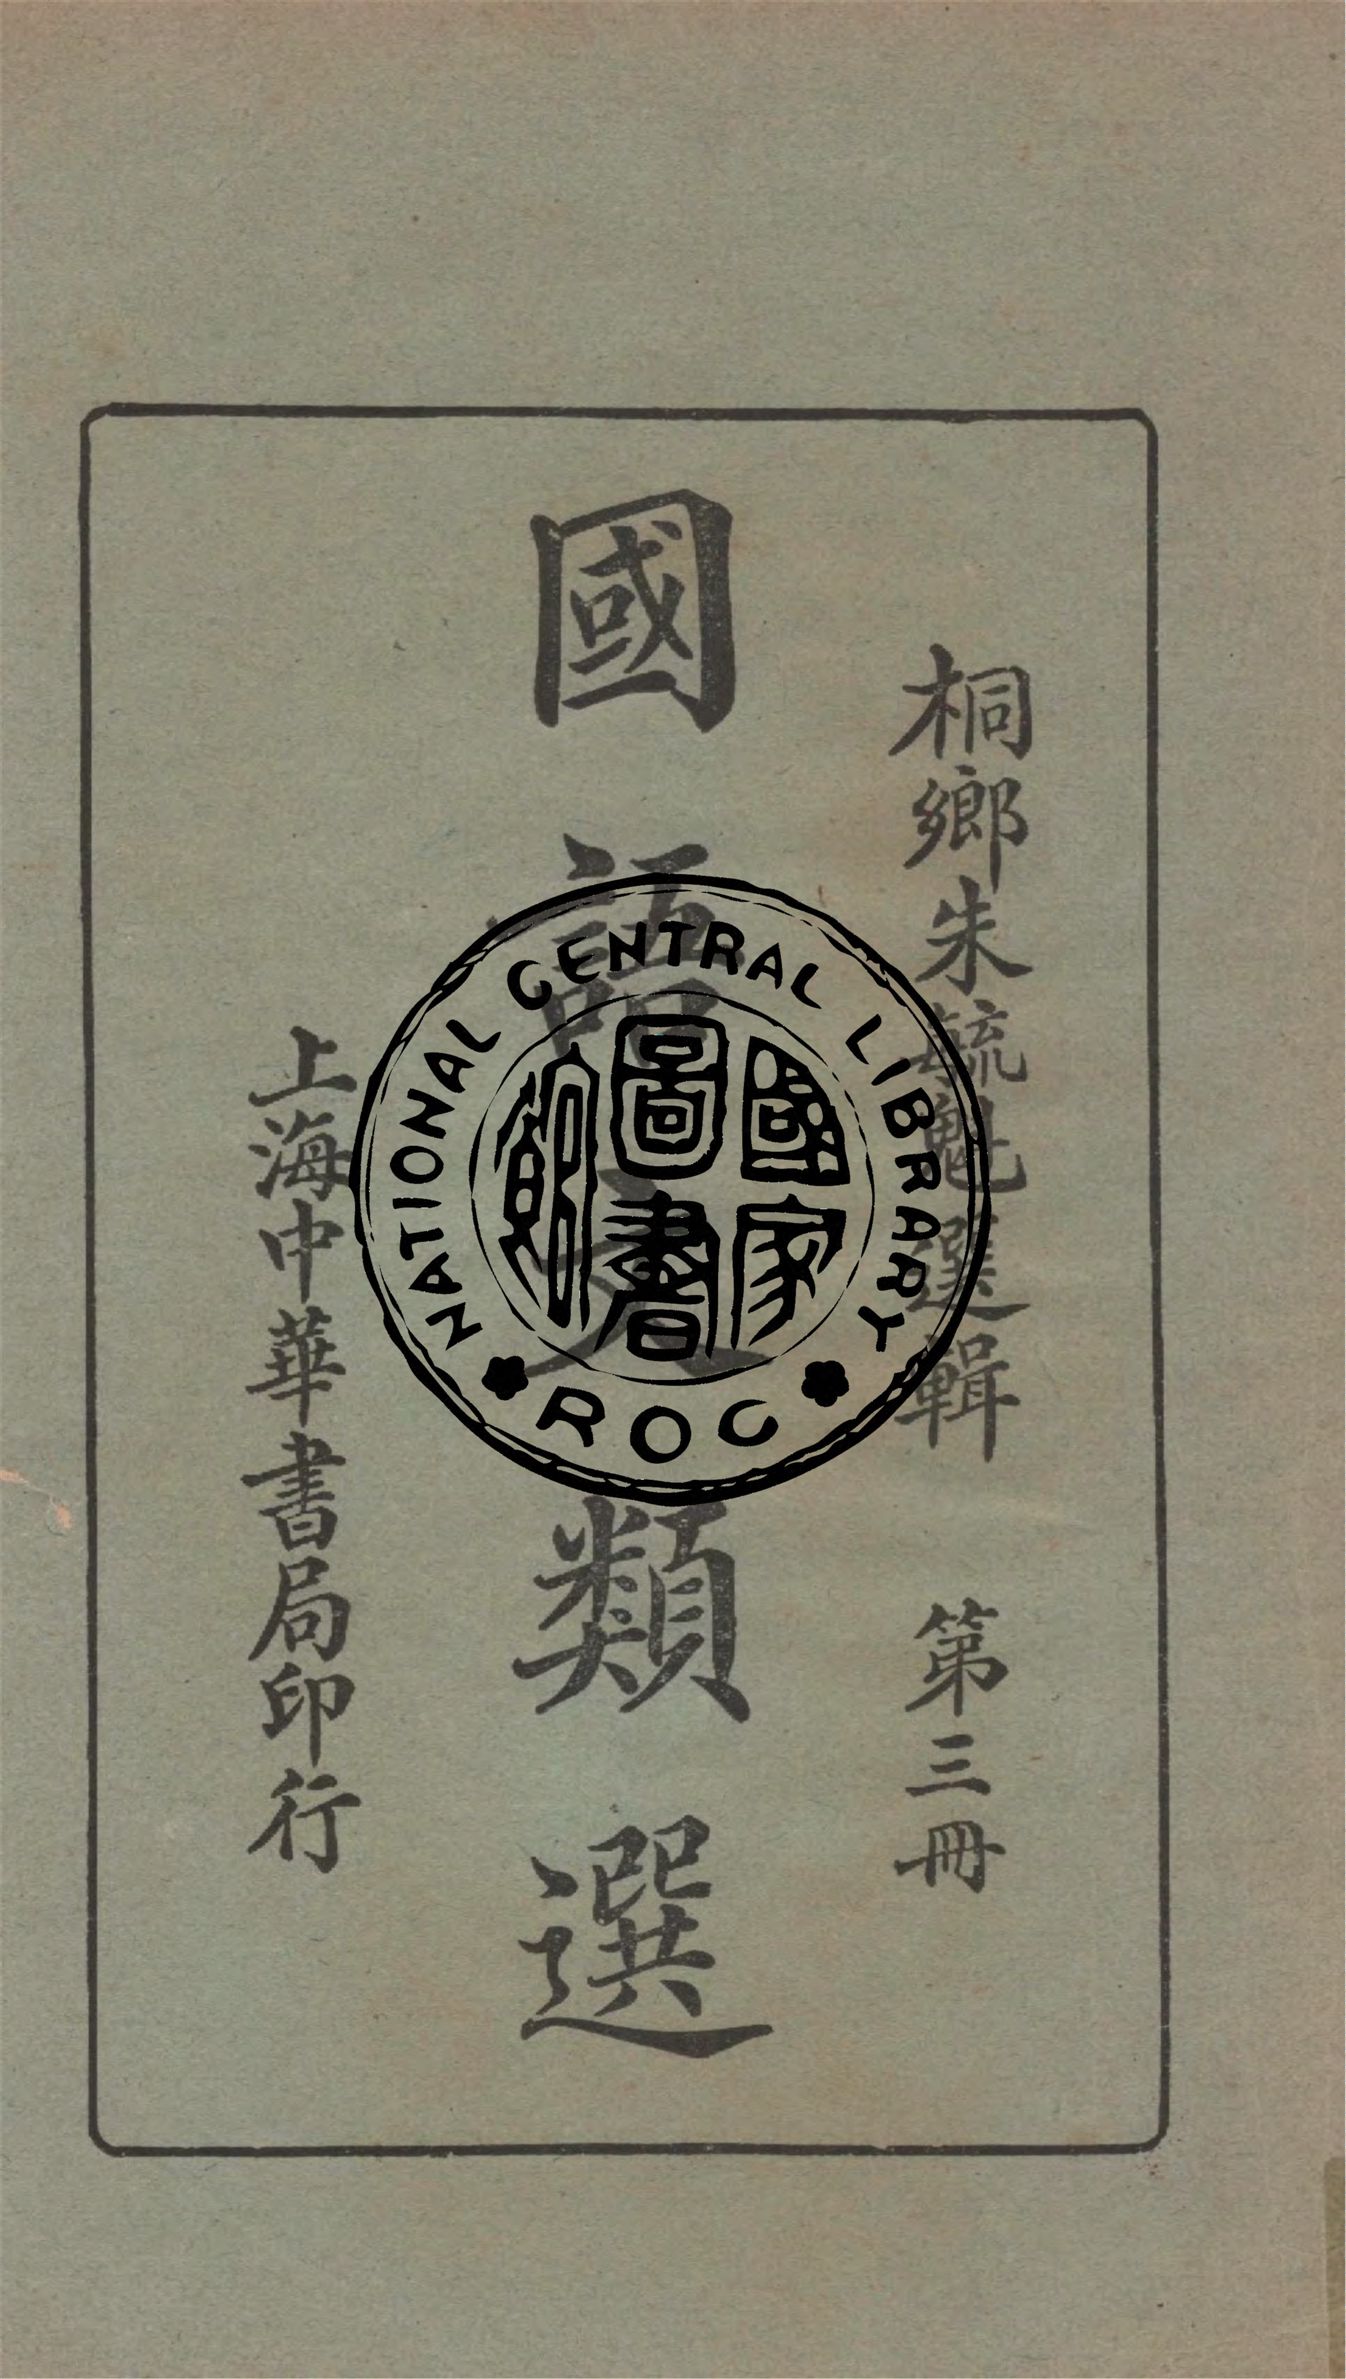 桐鄉朱毓魁選輯　第三冊
國語文類選
上海中華書局印行
NATIONAL CENTRAL LIBRARY
ROC
國家
圖書
館